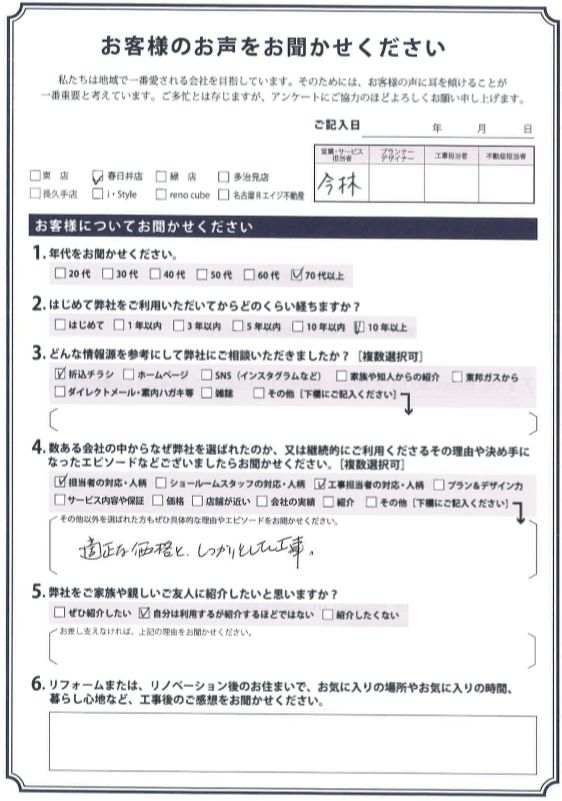 お客様のお声をお聞かせください
私たちは地域で一番愛される会社を目指しています。そのためには、お客様の声に耳を傾けることが
一番重要と考えています。ご多忙とは存じますが、アンケートにご協力のほどよろしくお願い申し上げます。
ご記入日 年 月 日
営業・サービス担当者 プランナーデザイナー 工事担当者 不動産担当者
今林
□東 店 ☑春日井店 □緑 店 □多治見店
□長久手店 □i・Style □reno cube □名古屋Rエイジ不動産
お客様についてお聞かせください
1. 年代をお聞かせください。
□20代 □30代 □40代 □50代 □60代 ☑70代以上
2. はじめて弊社をご利用いただいてからどのくらい経ちますか?
□はじめて □1年以内 □3年以内 □5年以内 □10年以内 ☑10年以上
3. どんな情報源を参考にして弊社にご相談いただきましたか?［複数選択可］
☑折込チラシ □ホームページ □SNS（インスタグラムなど） □家族や知人からの紹介 □東邦ガスから
□ダイレクトメール・案内ハガキ等 □雑誌 □その他［下欄にご記入ください］
4. 数ある会社の中からなぜ弊社を選ばれたのか、又は継続的にご利用くださるその理由や決め手に
なったエピソードなどございましたらお聞かせください。［複数選択可］
☑担当者の対応・人柄 □ショールームスタッフの対応・人柄 ☑工事担当者の対応・人柄 □プラン&デザイン力
□サービス内容や保証 □価格 □店舗が近い □会社の実績 □紹介 □その他［下欄にご記入ください］
その他以外を選ばれた方もぜひ具体的な理由やエピソードをお聞かせください。
適正な価格と、しっかりとした工事。
5. 弊社をご家族や親しいご友人に紹介したいと思いますか?
□ぜひ紹介したい ☑自分は利用するが紹介するほどではない □紹介したくない
お差し支えなければ、上記の理由をお聞かせください。
6. リフォームまたは、リノベーション後のお住まいで、お気に入りの場所やお気に入りの時間、
暮らし心地など、工事後のご感想をお聞かせください。